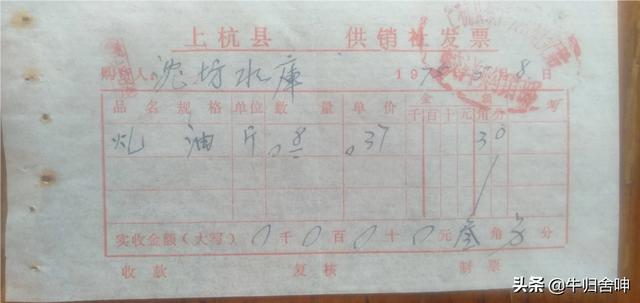 上杭县 供销社发票
购货人 坊水库 1978年5月8日
品名 规格 单位 数量 单价 金额 考
千百十元角分
油 斤 .8 .37 30
实收金额(大写) 0千0百0十0元叁角 分
收款 复核 制票
头条 @牛归舍呻